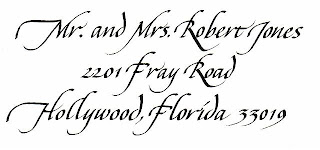 Mr. and Mrs. Robert Jones
2201 Fray Road
Hollywood, Florida 33019